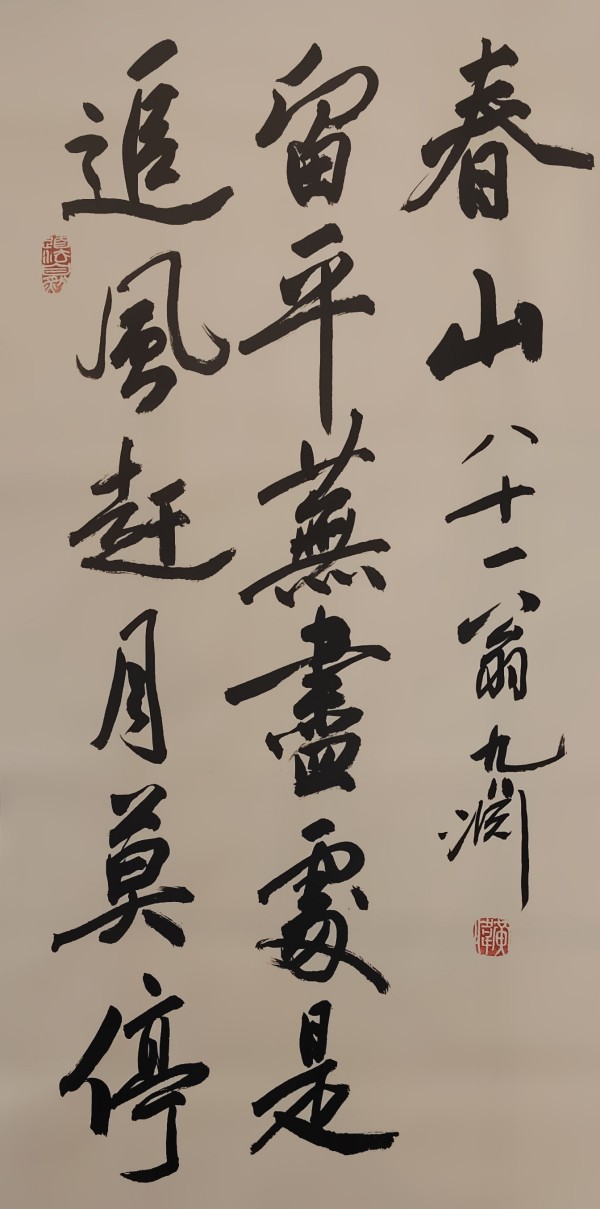 追風赶月莫停
留平蕪盡處是
春山
八十一翁九淵